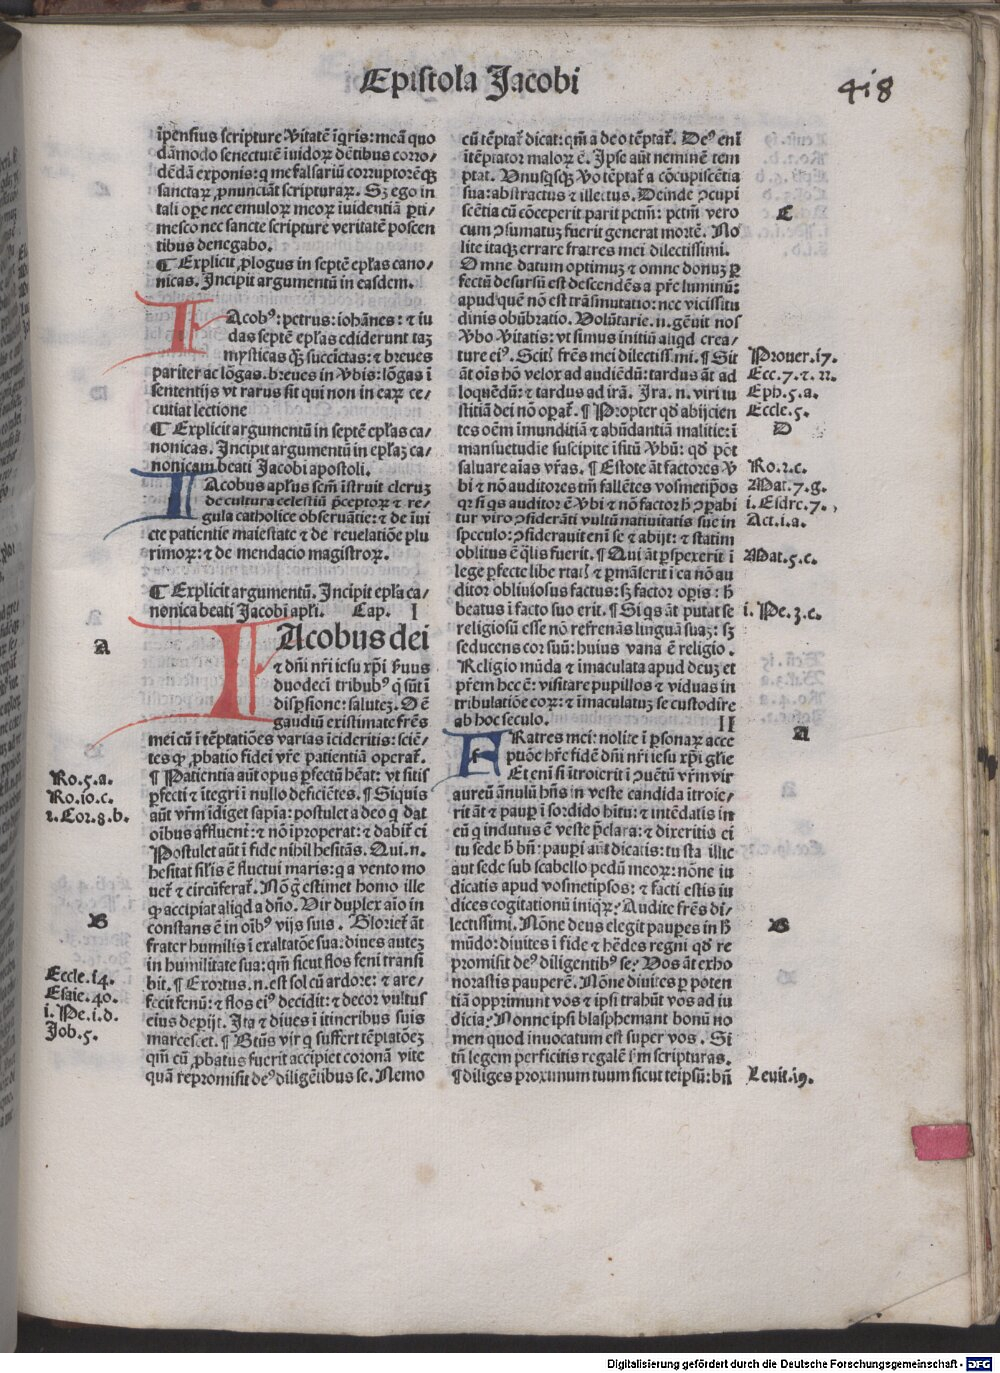 Epistola Jacobi
418
īpensius scripture v̓itatē īq̄ris: meā quo
dāmodo senectutē īuidoꝝ dētibus corro/
dēdā exponis: q me falsariū corruptorēqꝫ
sanctaꝝ ꝓnunciāt scripturaꝝ. Sꝫ ego in
tali oꝑe nec emuloꝝ meoꝝ iuidentiā ꝑti/
mesco nec sancte scripture veritatē poscen
tibus denegabo.
¶ Explicit ꝓlogus in septē ep̄las cano/
nicas. Incipit argumentū in easdem.
IAcobꝰ: petrus: iohānes: ⁊ iu
das septē ep̄las ediderunt taꝫ
mysticas qꝫ succictas: ⁊ breues
pariter ac lōgas. breues in v̓bis: lōgas ī
sententijs vt rarus sit qui non in eaꝝ ce/
cutiat lectione
¶ Explicit argumentū in septē ep̄las ca/
nonicas. Incipit argumentū in ep̄laꝫ ca/
nonicam beati Jacobi apostoli.
IAcobus apl̄us sc̄m īstruit cleruꝫ
de cultura celestiū p̄ceptoꝝ ⁊ re/
gula catholice obseruātie: ⁊ de īui
cte patientie maiestate ⁊ de reuelatiōe plu
rimoꝝ: ⁊ de mendacio magistroꝝ.
¶ Explicit argumentū. Incipit ep̄la ca/
nonica beati Jacobi apl̄i. Cap. I
A
IAcobus dei
⁊ dn̄i nr̄i iesu xp̄i ẜuus
duodecī tribubꝰ q̄ sūt ī
disꝑsione: saluteꝫ. Oē
gaudiū existimate fr̄es
mei cū ī tēptatiōes varias īcideritis: sciē/
tes qꝫ ꝓbatio fidei vr̄e patientiā operat̃.
¶ Patientia aūt opus ꝑfectū hēat: vt sitis
ꝑfecti ⁊ ītegri ī nullo deficiētes. ¶ Siquis
aūt vr̄m īdiget sapīa: postulet a deo q dat
oībus affluent̃: ⁊ nō īproperat: ⁊ dabit̃ ei
Postulet aūt ī fide nihil hesitās. Qui.n.
hesitat sil̄is ē fluctui maris: q a vento mo
uet̃ ⁊ circūferat̃. Nō ḡ estimet homo ille
ꝙ accipiat aliqd a dn̄o. Vir duplex aīo in
constans ē in oībꝰ vijs suis. Gloriet̃ āt
frater humilis ī exaltatōe sua: diues auteꝫ
in humilitate sua: qm̄ sicut flos feni transi
bit. ¶ Exortus.n.est sol cū ardore: ⁊ are/
fecit fenū: ⁊ flos eiꝰ decidit: ⁊ decor vultus
eius deperijt. Ita ⁊ diues ī itineribus suis
marcescet. ¶ Btūs vir q suffert tēptatōeꝫ
qm̄ cū ꝓbatus fuerit accipiet coronā vite
quā repromisit deꝰ diligētibus se. Nemo
Ro.5.a.
Ro.io.c.
2.Cor.8.b.
B
Eccle.i4.
Esaie.40.
i.Pe.i.d.
Job.5.
cū tēptat̃ dicat: qm̄ a deo tēptat̃. Deꝰ enī
ītēptator maloꝝ ē. Ipse aūt neminē tem
ptat. Vnusqsqꝫ v̓o tēptat̃ a cōcupiscētia
sua: abstractus ⁊ illectus. Deinde ꝯcupi
scētia cū cōceperit parit pctm̄: pctm̄ vero
cum ꝯsumatuꝫ fuerit generat mortē. No
lite itaqꝫ errare fratres mei dilectissimi.
Omne datum optimuꝫ ⁊ omne donuꝫ ꝑ
fectū desursū est descendēs a pr̄e luminū:
apud quē nō est trāsmutatio: nec vicissitu
dinis obūbratio. Volūtarie.n.gēuit nos
v̓bo v̓itatis: vt simus initiū aliqd crea/
ture eiꝰ. Scit̃ fr̄es mei dilectissimi. ¶ Sit
āt oīs hō velox ad audiēdū: tardus āt ad
loquēdū: ⁊ tardus ad irā. Ira.n.viri iu
stitiā dei nō oꝑat̃. ¶ Propter qd̄ abijcien
tes oēm īmunditiā ⁊ abūdantiā malitie: ī
mansuetudie suscipite īsitū v̓bū: qd̄ pōt
saluare aīas vr̄as. ¶ Estote āt factores v̓
bi ⁊ nō auditores tm̄ fallētes vosmetip̄os
qr si qs auditor ē v̓bi ⁊ nō factor h̄ ꝯparabi
tur viro ꝯsiderāti vultū natiuitatis sue in
speculo: ꝯsiderauit enī se ⁊ abijt: ⁊ statim
oblitus ē q̄lis fuerit. ¶ Qui āt ꝑspexerit ī
lege ꝑfecte libertat̃ ⁊ ꝑmāserit ī ea nō au
ditor obliuiosus factus: sꝫ factor oꝑis: h̄
beatus ī facto suo erit. ¶ Si qs āt putat se
religiosū esse nō refrenās linguā suaꝫ: sꝫ
seducens cor suū: huius vana ē religio.
Religio mūda ⁊ īmaculata apud deuꝫ et
pr̄em hec ē: visitare pupillos ⁊ viduas in
tribulatiōe eoꝝ: ⁊ īmaculatuꝫ se custodire
ab hoc seculo. II
FRatres mei: nolite ī ꝑsonaꝝ acce
ptiōe hr̄e fidē dn̄i nr̄i iesu xp̄i gl̄ie
Et enī si ītroierit ī ꝯuētū vr̄m vir
aureū ānulū hn̄s in veste candida ītroie/
rit āt ⁊ pauꝑ ī sordido hītu: ⁊ intēdatis in
eū q indutus ē veste p̄clara: ⁊ dixeritis ei
tu sede h̄ bn̄: pauꝑi aūt dicatis: tu sta illic
aut sede sub scabello pedū meoꝝ: nōne iu
dicatis apud vosmetipsos: ⁊ facti estis iu
dices cogitationū iniqꝝ? Audite fr̄es di/
lectissimi. Nōne deus elegit pauꝑes in h̄
mūdo: diuites ī fide ⁊ hēdes regni qd̄ re
promisit deꝰ diligentibꝰ se? Vos āt exho
norastis pauperē. Nōne diuites ꝑ poten
tiā opprimunt vos ⁊ ipsi trahūt vos ad iu
dicia? Nonne ipsi blasphemant bonū no
men quod inuocatum est super vos. Si
tn̄ legem ꝑficitis regalē ẜm scripturas.
¶ diliges proximum tuum sicut teipsū: bn̄
C
Prouer.i7.
Ecc.7.⁊.22.
Eph.5.a.
Eccle.5.
D
Ro.2.c.
Mat.7.g.
i.Esdre.7.
Act.i.a.
Mat.5.c.
i.Pe.3.c.
A
B
Leuit.i9.
Digitalisierung gefördert durch die Deutsche Forschungsgemeinschaft - DFG